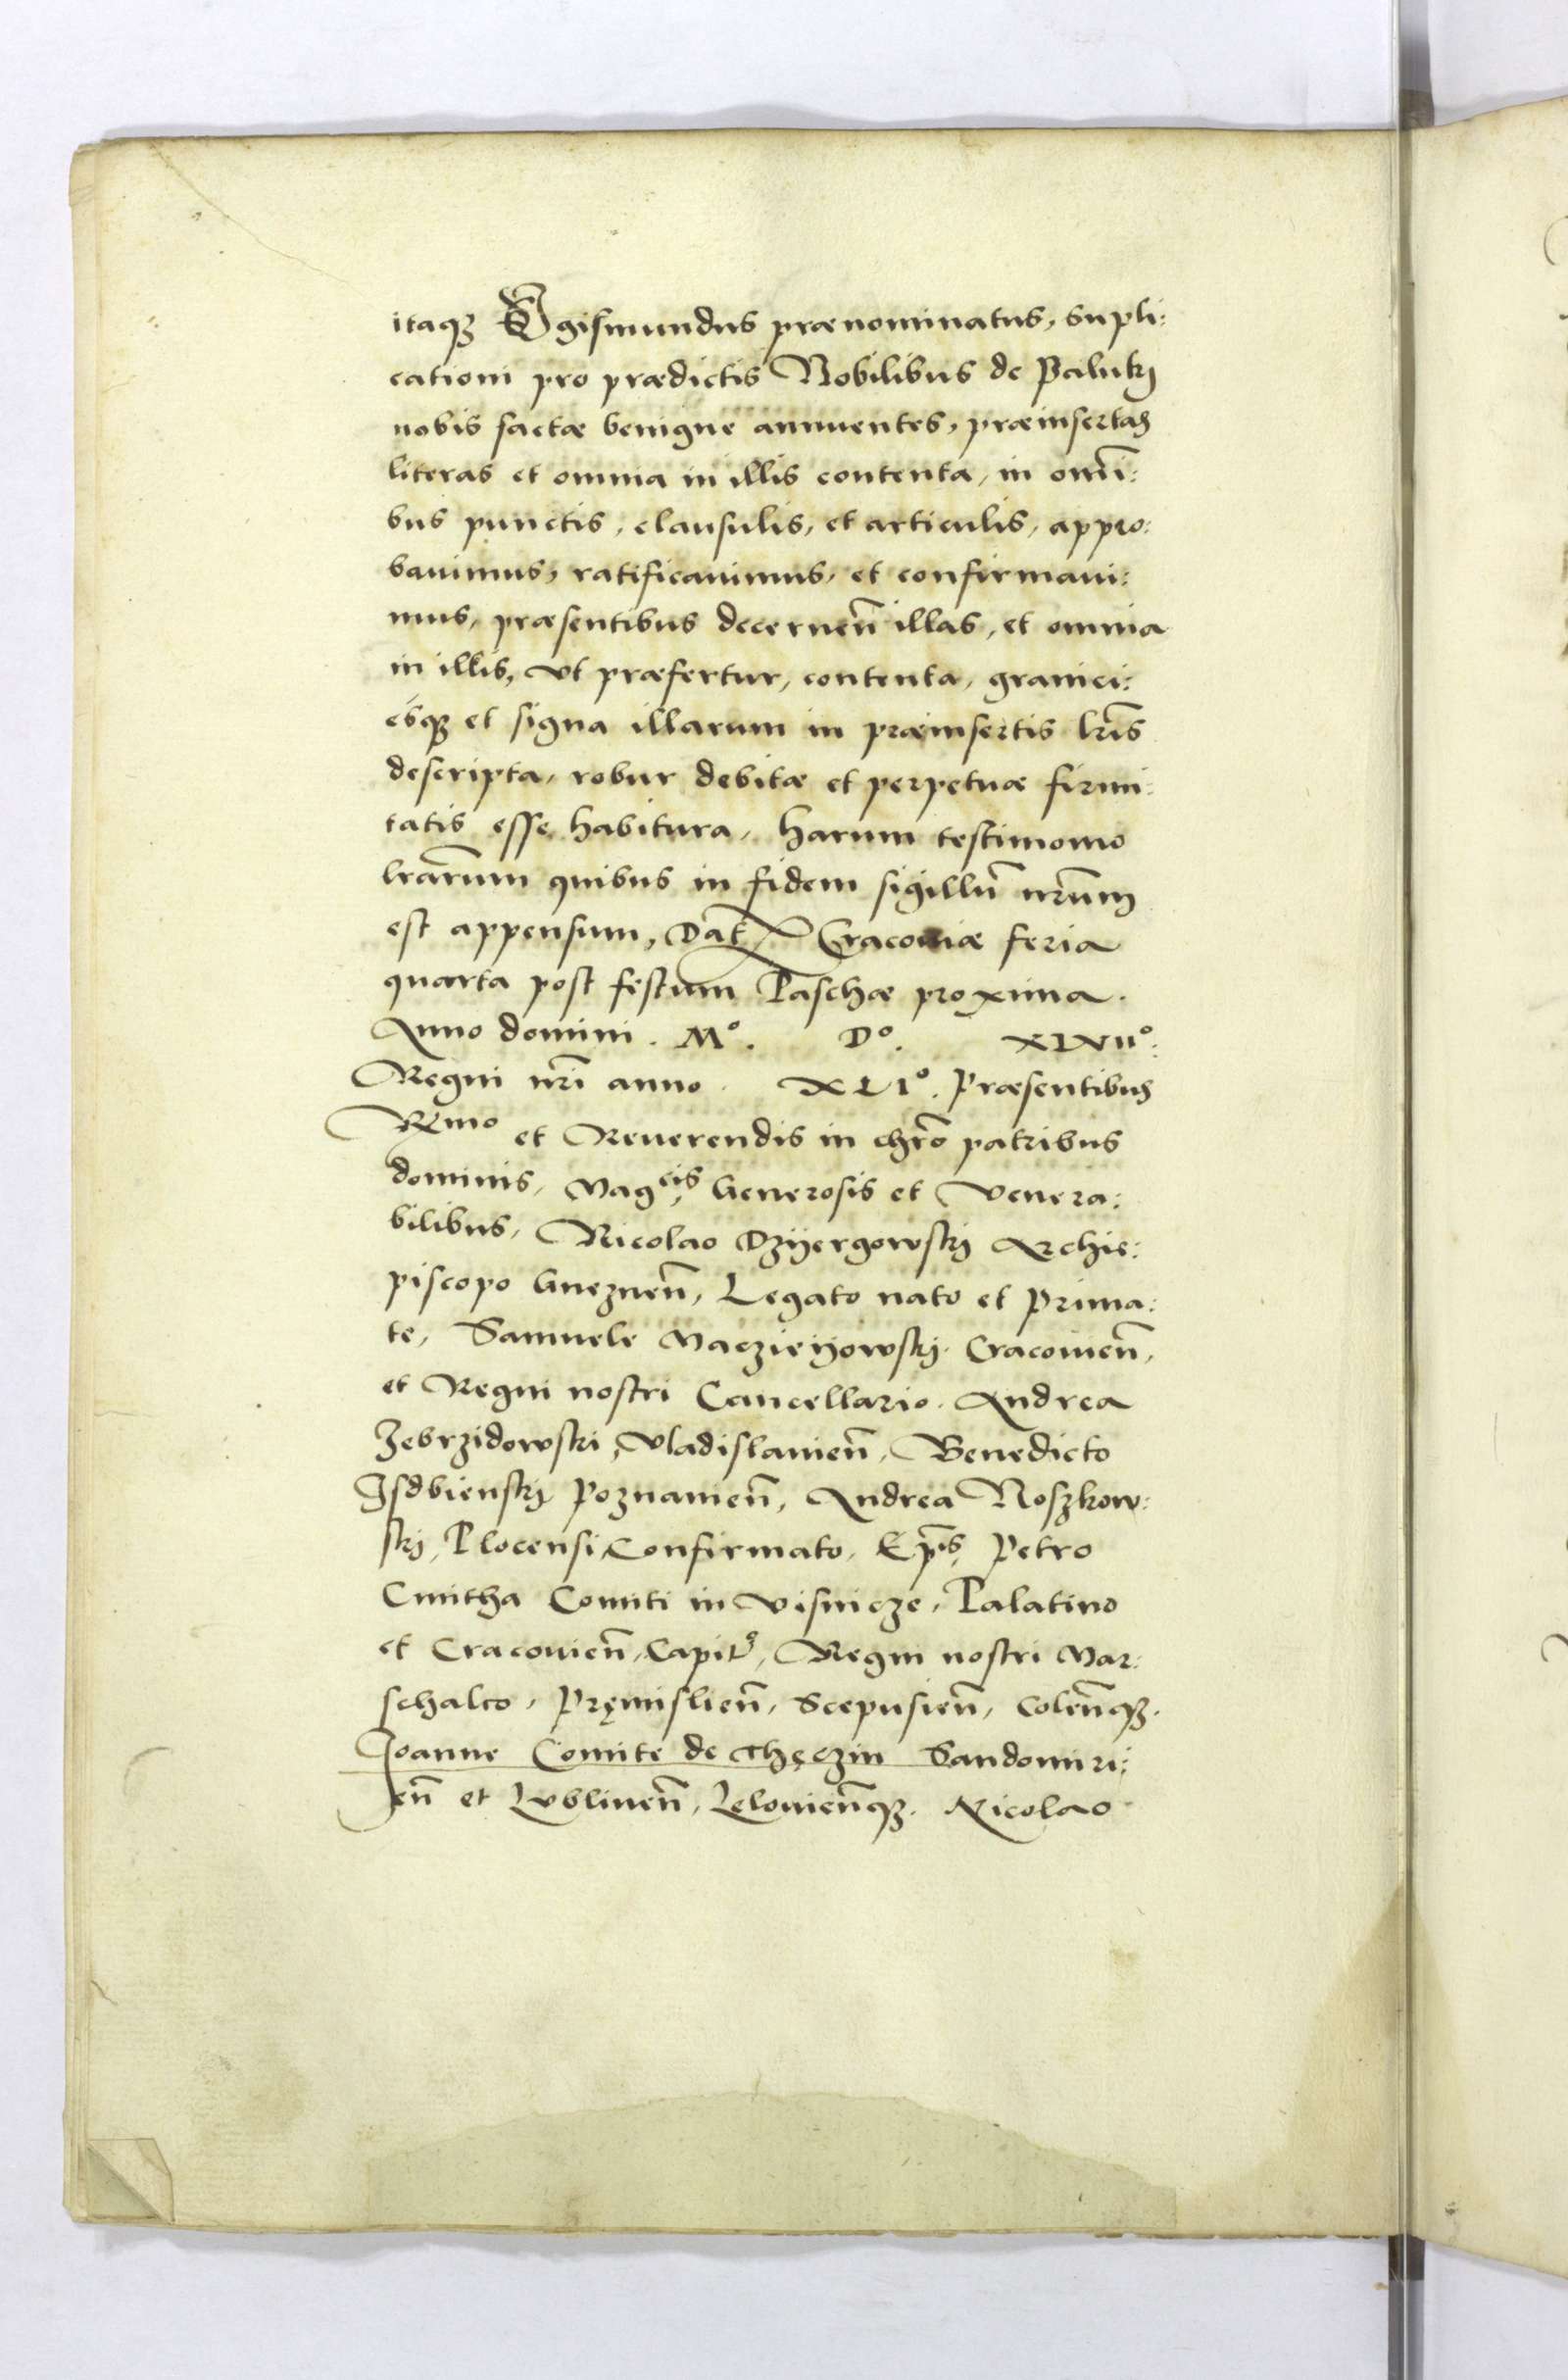 itaqꝫ Sigismundus prænominatus, supli:
cationi pro prædictis Nobilibus de Palukj
nobis factæ benigne annuentes, præinsertas
literas et omnia in illis contenta, in omī:
bus punctis, clausulis, et articulis, appro:
bauimus, ratificauimus, et confirmaui:
mus, præsentibus decernen̄ illas, et omnia
in illis, vt præfertur, contenta, granici:
esqꝫ et signa illarum in præinsertis lr̄is
descripta, robur debitæ et perpetuæ firmi:
tatis esse habitura, harum testimonio
lrārum quibus in fidem sigillū nr̄um
est appensum, Dat̄ Cracouiæ feria
quarta post festum Paschæ proxima.
Anno domini. Mº. Dº. XLVIIº:
Regni nr̄i anno. XLIº. Præsentibus
Rmo et Reuerendis in chr̄o patribus
dominis, Magcis, Generosis et Venera:
bilibus, Nicolao Dzÿergowskj Archie:
piscopo Gneznen̄, Legato nato et Prima:
te, Samuele Macziejjowskj. Cracouien̄,
et Regni nostri Cancellario. Andrea
Zebrzidowski, Vladislauien̄, Benedicto
Isdbienskj Poznanien̄, Andrea Noszkow:
skj, Plocensi, Confirmato, Ep̄is, Petro
Cmitha Comiti in Visnicze, Palatino
et Cracouien̄, Capitº, Regni nostri Mar:
schalco, Pręmislien̄, Scepusien̄, Colen̄qꝫ.
Joanne Comite de Thęczin Sandomiri:
en̄ et Lublinen̄, Lelouien̄qꝫ. Nicolao